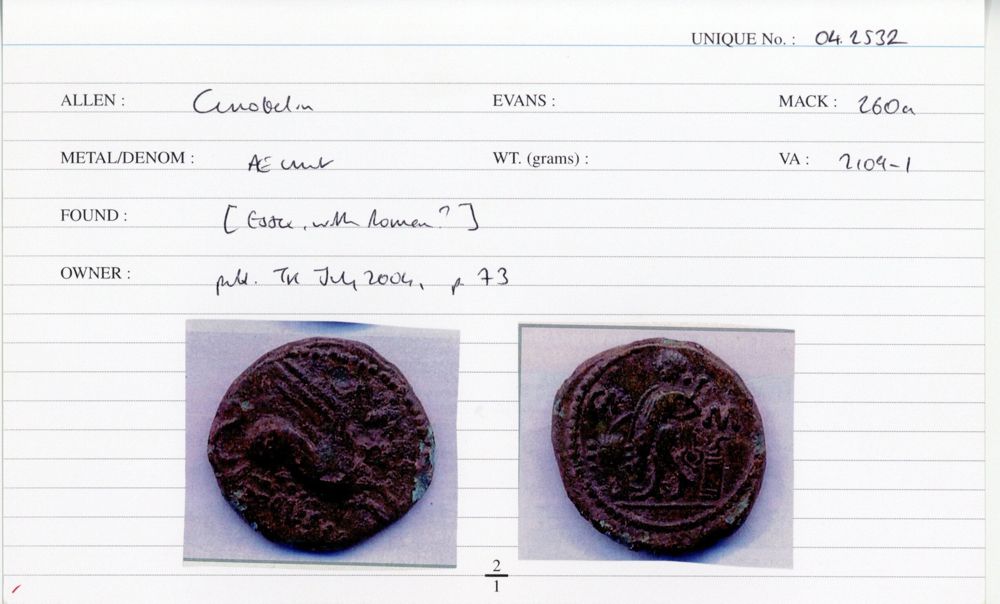 UNIQUE No. : 04.2532
ALLEN : Cunobelin EVANS : MACK : 260a
METAL/DENOM : AE unit WT. (grams) : VA : 2109-1
FOUND : [Essex, with Roman?]
OWNER : publ. TH July 2004, p 73
C N
2
1